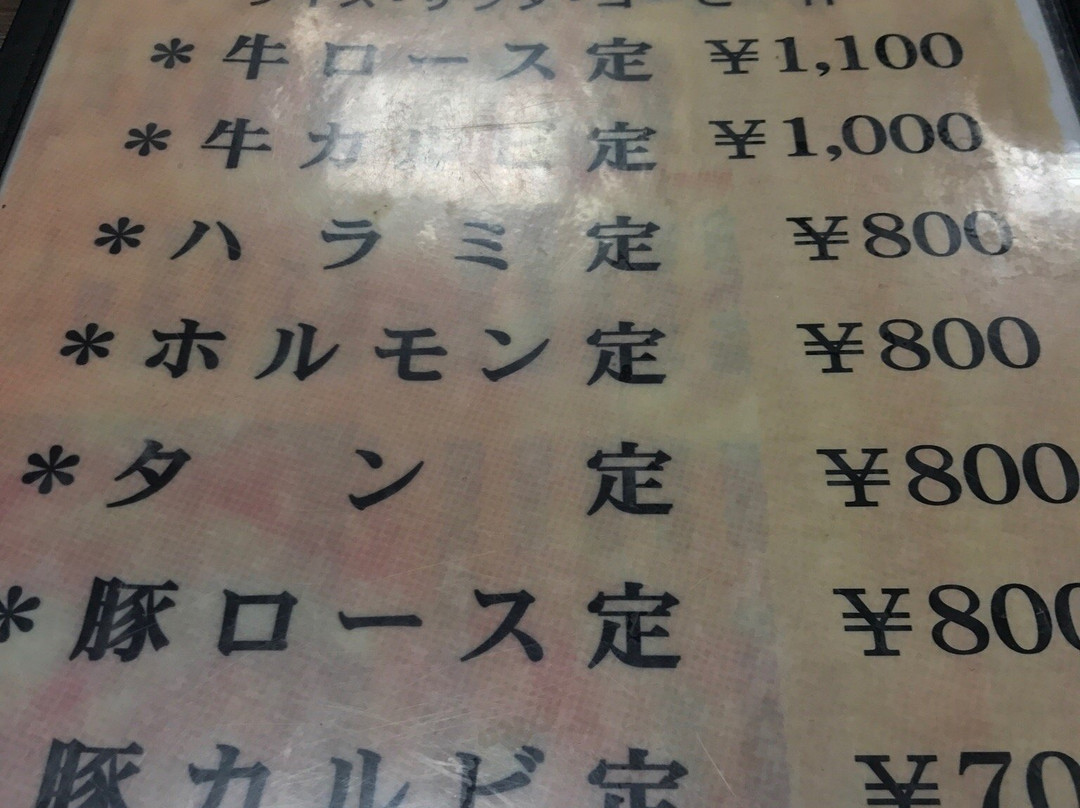 ライス・サラダ・コーヒー付
*牛ロース定 ¥1,100
*牛カルビ定 ¥1,000
*ハラミ定 ¥800
*ホルモン定 ¥800
*タン定 ¥800
*豚ロース定 ¥800
豚カルビ定 ¥70